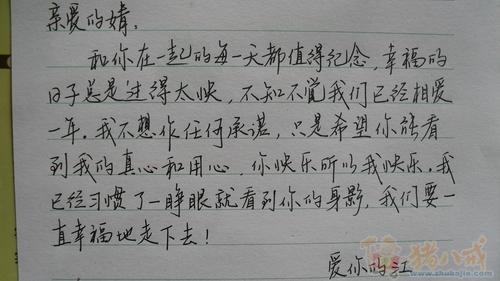 亲爱的婧，
和你在一起的每一天都值得纪念，幸福的
日子总是过得太快，不知不觉我们已经相爱
一年。我不想作任何承诺，只是希望你能看
到我的真心和用心，你快乐所以我快乐。我
已经习惯了一睁眼就看到你的身影，我们要一
直幸福地走下去！
爱你的江
猪八戒
www.zhubajie.com